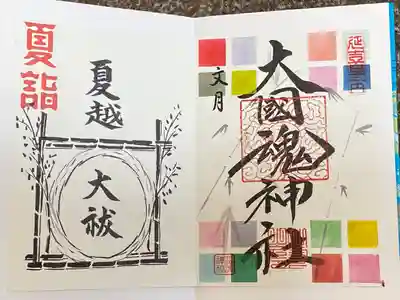 延喜式内
文月
大國魂神社
夏詣
夏越
大祓